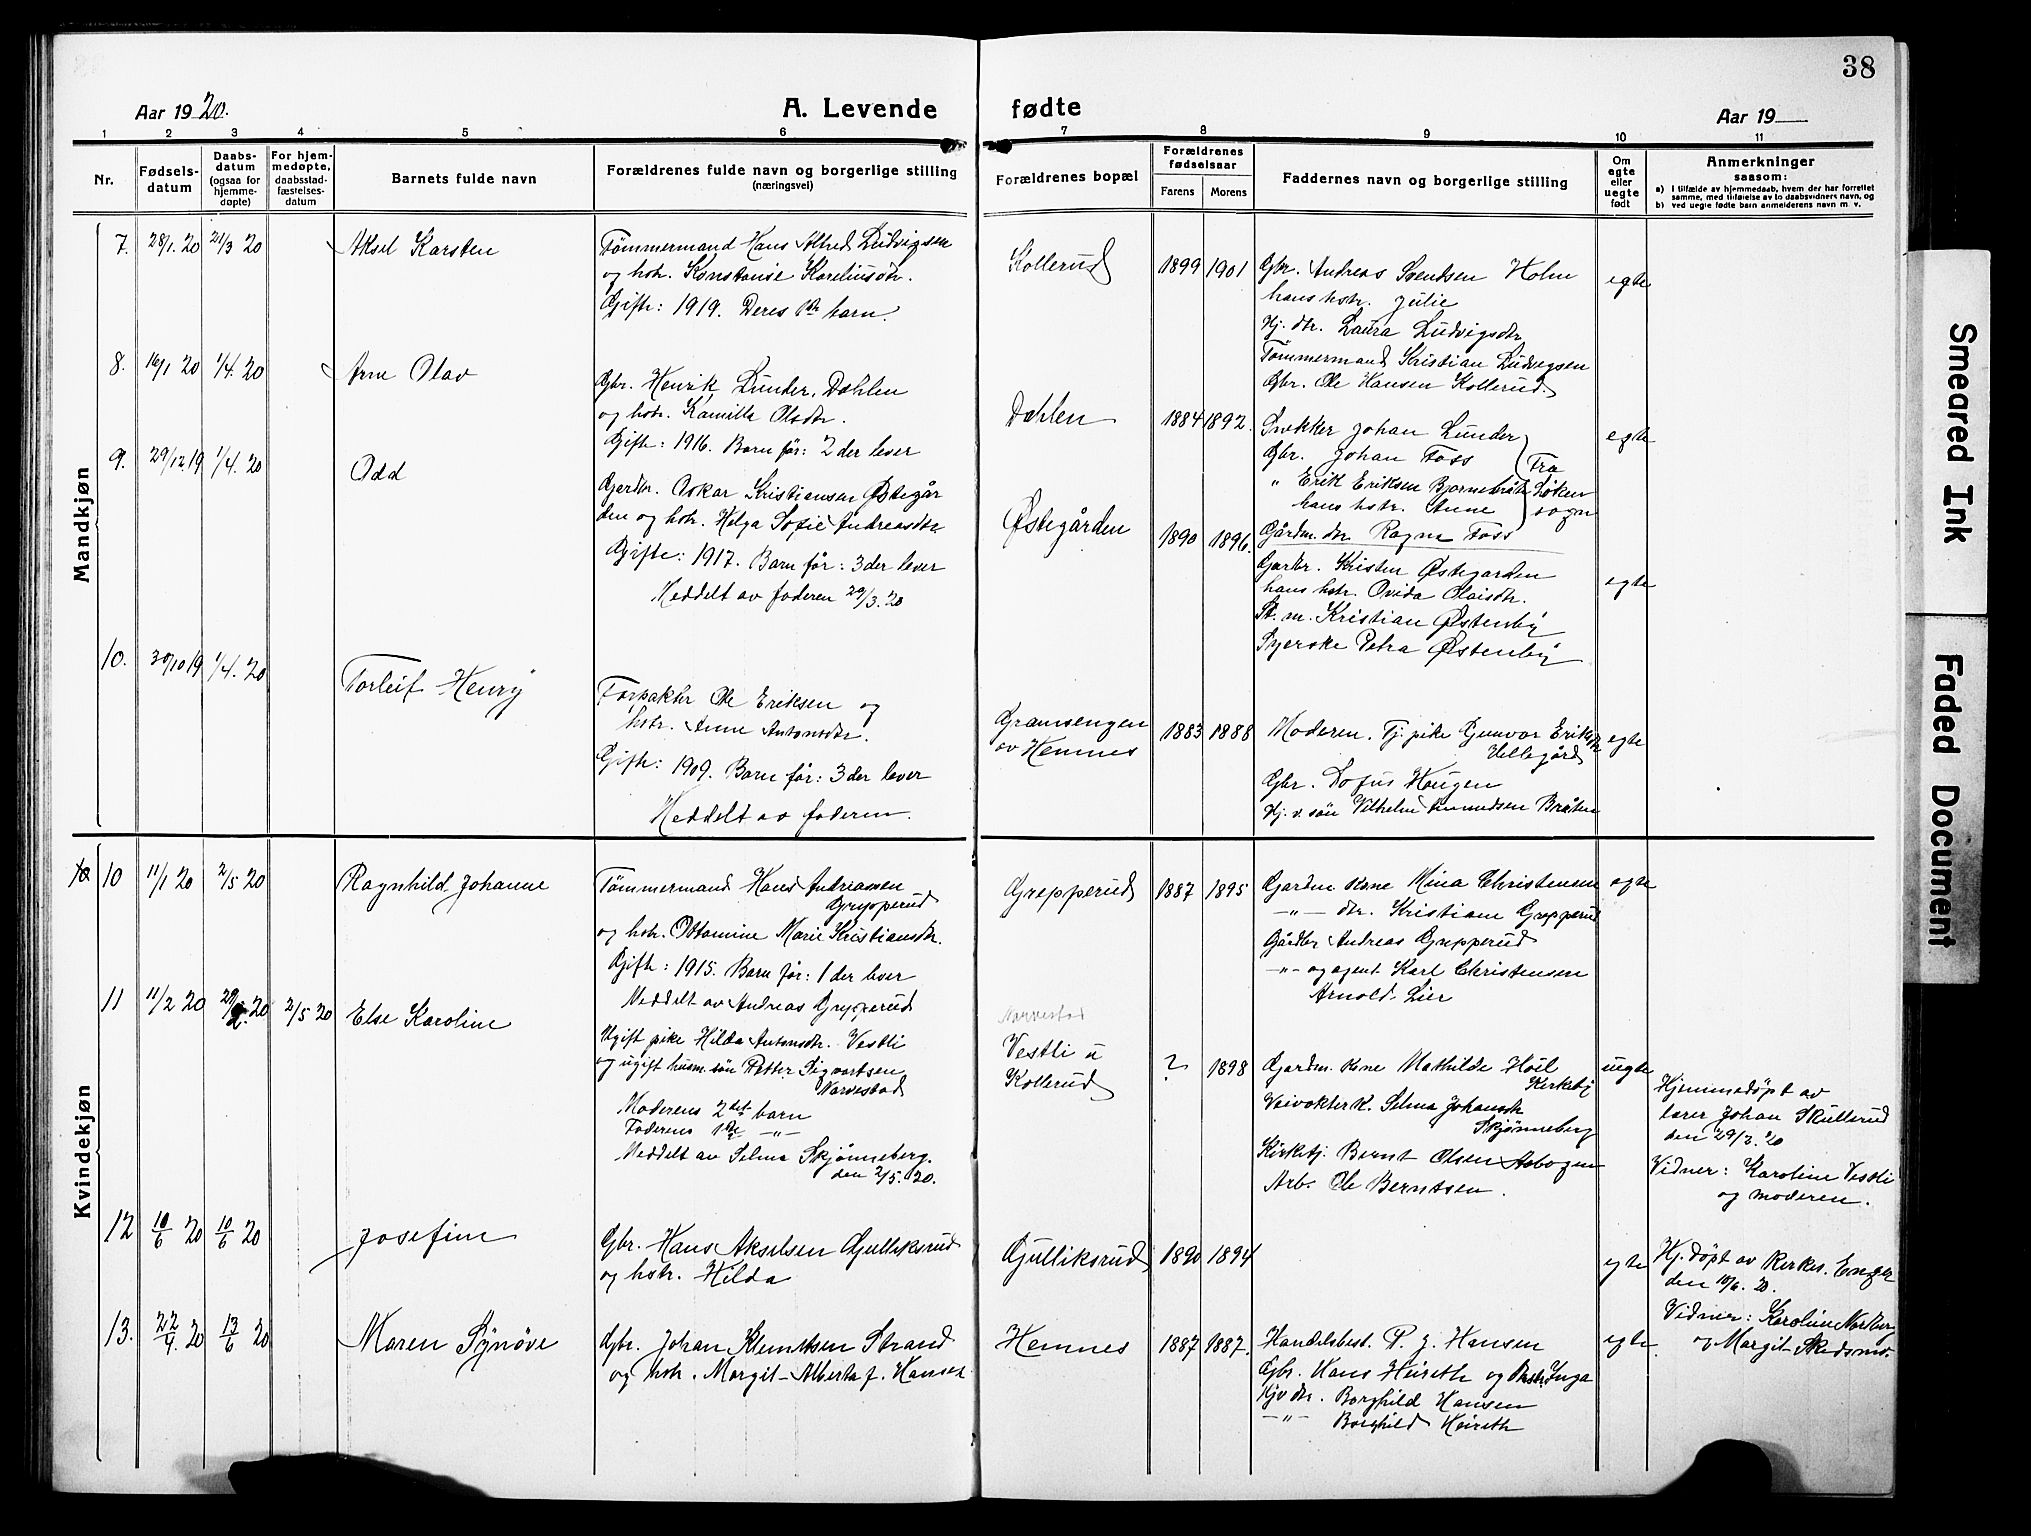 38
Aar 1920.
A. Levende fødte
Aar 19
1 2 3 4 5 6 7 8 9 10 11
Nr.
Fødsels-
datum
Daabs-
datum
(ogsaa for
hjemme-
døpte)
For hjem-
medøpte,
daabsstad-
fæstelses-
datum
Barnets fulde navn
Forældrenes fulde navn og borgerlige stilling
(næringsvei)
Forældrenes bopæl
Forældrenes
fødselsaar
Farens Morens
Faddernes navn og borgerlige stilling
Om
egte
eller
uegte
født
Anmerkninger
saasom:
a) i tilfælde av hjemmedaab, hvem der har forrettet
samme, med tilføielse av to daabsvidners navn, og
b) ved uegte fødte barn anmelderens navn m. v.
Mandkjøn
7. 28/1. 20 21/3 20
Aksel Karsten
Tømmermand Hans Alfred Ludvigsen
og hstr. Konstanse Kareliusdtr.
Gifte: 1919. Deres 1ste barn.
Kollerud
1899 1901
Gbr. Andreas Svendsen Holm
hans hstr. Julie
Hj. dtr. Laura Ludvigsdtr
Tømmermand Kristian Ludvigsen
Gbr. Ole Hansen Kollerud.
egte
8. 16/1 20 1/4. 20
Arne Olav
Gbr. Henrik Lunder, Dahlen
og hstr. Kamilla Olsdtr.
Gifte: 1916. Barn før: 2 der lever
Dahlen
1884 1892.
Snekker Johan Lunder
Gbr. Johan Foss
" Erik Eriksen Bjørnebråte
hans hstr. Anne
Fra
Løken
sogn
Gårdm. dtr. Ragna Foss
egte
9. 29/12.19 1/4. 20
Odd
Gardbr. Oskar Kristiansen Østegår
den og hstr. Helga Sofie Andreasdtr.
Gifte: 1917. Barn før: 3 der lever
Meddelt av faderen 29/3. 20
Østegården
1890 1896.
Garbr. Kristen Østegarden
hans hstr. Ovida Olaisdtr.
St. m. Kristian Østenby
Syerske Petra Østenby
egte
10. 30/10 19 1/4. 20
Torleif Henry
Forpakter Ole Eriksen og
hstr. Anne Antonsdtr.
Gifte: 1909. Barn før: 3 der lever
Meddelt av faderen.
Gramsengen
av Hemnes
1883 1888
Moderen. Tj. pike Gunvor Eriksdtr
Gbr. Dofus Haugen
Hj. v. søn Vilhelm Amundsen Bråten
egte
Kvindekjøn
10 11/1 20 2/5 20
Ragnhild Johanne
Tømmermand Hans Andreassen
Grepperud
og hstr. Ottomine Marie Kristiansdtr.
Gifte: 1915. Barn før: 1 der lever
Meddelt av Andreas Grepperud
Grepperud
1887 1895
Gardm. kone Mina Christensen
-"- dtr. Kristiane Grepperud
Gårdbr Andreas Grepperud
-"- og agent Karl Christensen
Arnold Lier
egte
11 11/2 20 29/2. 20 2/5 20
Else Karoline
Ugift pike Hilda Antonsdtr. Vestli
og ugift husm. søn Petter Sigvartsen
Narvestad
Moderens 2det barn
Faderens 1ste -"-
Meddelt av Selma Skjønneberg.
den 2/5. 20.
Narvestad
Vestli u
Kollerud
? 1898
Gardm. kone Mathilde Høil
Kirkeby
Veivokter k. Selma Johansdtr
Skjønneberg
Kirketj. Bernt Olsen Asbogen
Arb. Ole Berntsen.
uegte
Hjemmedøpt av
lærer Johan Skullerud
den 29/2. 20
Vidner: Karoline Vestli
og moderen.
12 10/6 20 10/6 20
Josefine
Gbr. Hans Akselsen Gulliksrud
og hstr. Hilda
Gulliksrud
1890 1894
egte
Hj. døpt av kirkes. Enger
den 10/6. 20.
Vidner: Karoline Norberg
og Margit Skedsmo.
13. 22/4. 20 13/6 20
Maren Synøve
Gbr. Johan Klemetsen Strand
og hstr. Margit Alberta f. Hansen
Hemnes
1887 1887.
Handelsbest. P. J. Hansen
Gbr. Hans Heireth og hstr. Inga
Hjv dtr. Borghild Hansen
-"- Borghild Heireth
egte.
Smeared Ink
Faded Document